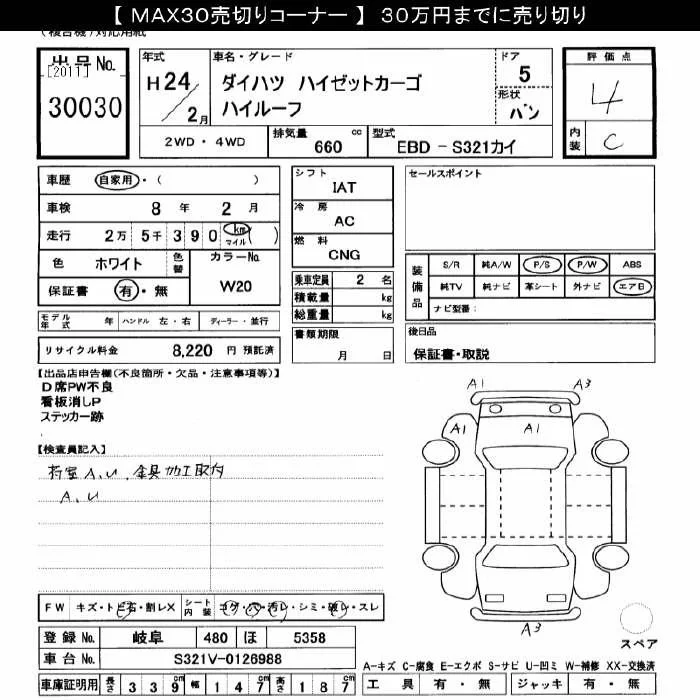 【 MAX30売切りコーナー 】 30万円までに売り切り
(複合機)対応用紙
出品No. [2011] 30030
年式 H24/2月
車名・グレード ダイハツ ハイゼットカーゴ
ハイルーフ
ドア 5
形状 バン
評価点 4
内装 C
2WD・4WD 排気量 660 cc 型式 EBD－S321カイ
車歴 自家用・( )
車検 8年 2月
走行 2万 5千 390 km マイル( )
色 ホワイト 色替 カラーNo. W20
保証書 有・無
モデル年式 年 ハンドル 左・右 ディーラー・並行
リサイクル料金 8,220 円 預託済
シフト IAT
冷房 AC
燃料 CNG
乗車定員 2 名
積載量 kg
総重量 kg
書類期限 月 日
セールスポイント
装備品 S/R 純A/W P/S P/W ABS
純TV 純ナビ 革シート 外ナビ エアB
ナビ型番:
後日品
保証書・取説
【出品店申告欄(不良箇所・欠品・注意事項等)】
D席PW不良
看板消しP
ステッカー跡
【検査員記入】
荷室A,U 金具加工取付
A,U
A1 A3
A1 A1
A3
スペア
FW キズ・トビ石・割レX シート内装 コゲ・穴・汚レ・シミ・破レ・スレ
登録No. 岐阜 480 ほ 5358
車台No. S321V-0126988
車庫証明用 長さ 339cm 幅 147cm 高さ 187cm
A-キズ C-腐食 E-エクボ S-サビ U-凹ミ W-補修 XX-交換済
工具 有・無 ジャッキ 有・無